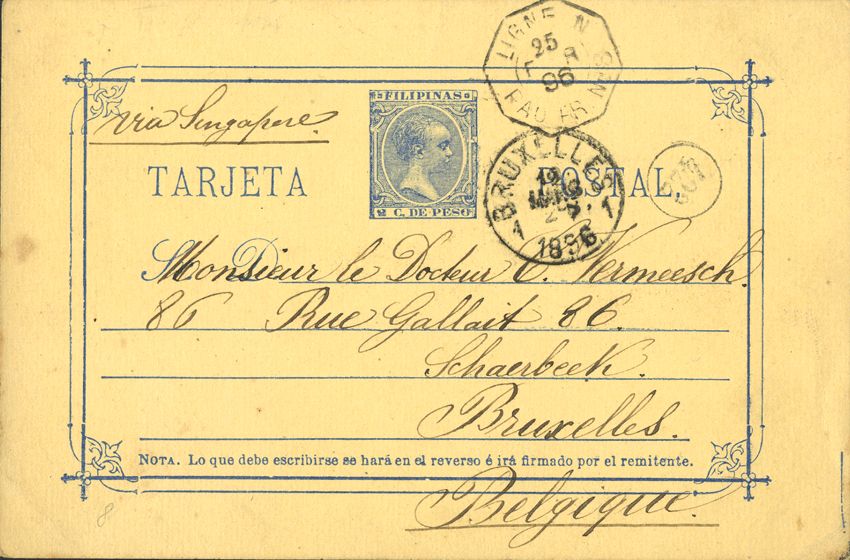 LIGNE N
PAQ. FR. Nº 8
25
96
via Singapore.
FILIPINAS
2 C. DE PESO
TARJETA POSTAL.
BRUXELLES
1 1
1896
Monsieur le Docteur C. Vermeesch.
86 Rue Gallait 86.
Schaerbeek.
Bruxelles.
NOTA. Lo que debe escribirse se hará en el reverso é irá firmado por el remitente.
Belgique.
8